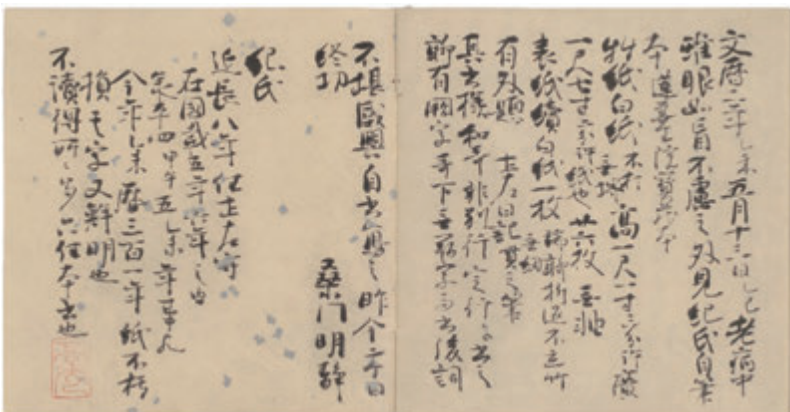 文暦二年乙未五月十三日乙巳老病中
雖眼如盲不慮之外見紀氏自筆
本蓮華王院宝蔵本
料紙白紙不打無堺高一尺一寸三分許広
一尺七寸二分許紙也廿六枚無軸
表紙続白紙一枚端聊折返不立竹無紐
有外題土左日記貫之筆
其書様和歌非別行定行に書之
聊有闕字哥下無闕字而書後詞
不堪感興自書写之昨今二ヶ日
終功
桑門明静
紀氏
延長八年任土左守
在国載五年六年之由
承平四甲午五乙未年事也
今年乙未暦三百一年紙不朽
損其字又鮮明也
不読得所々多只任本書也